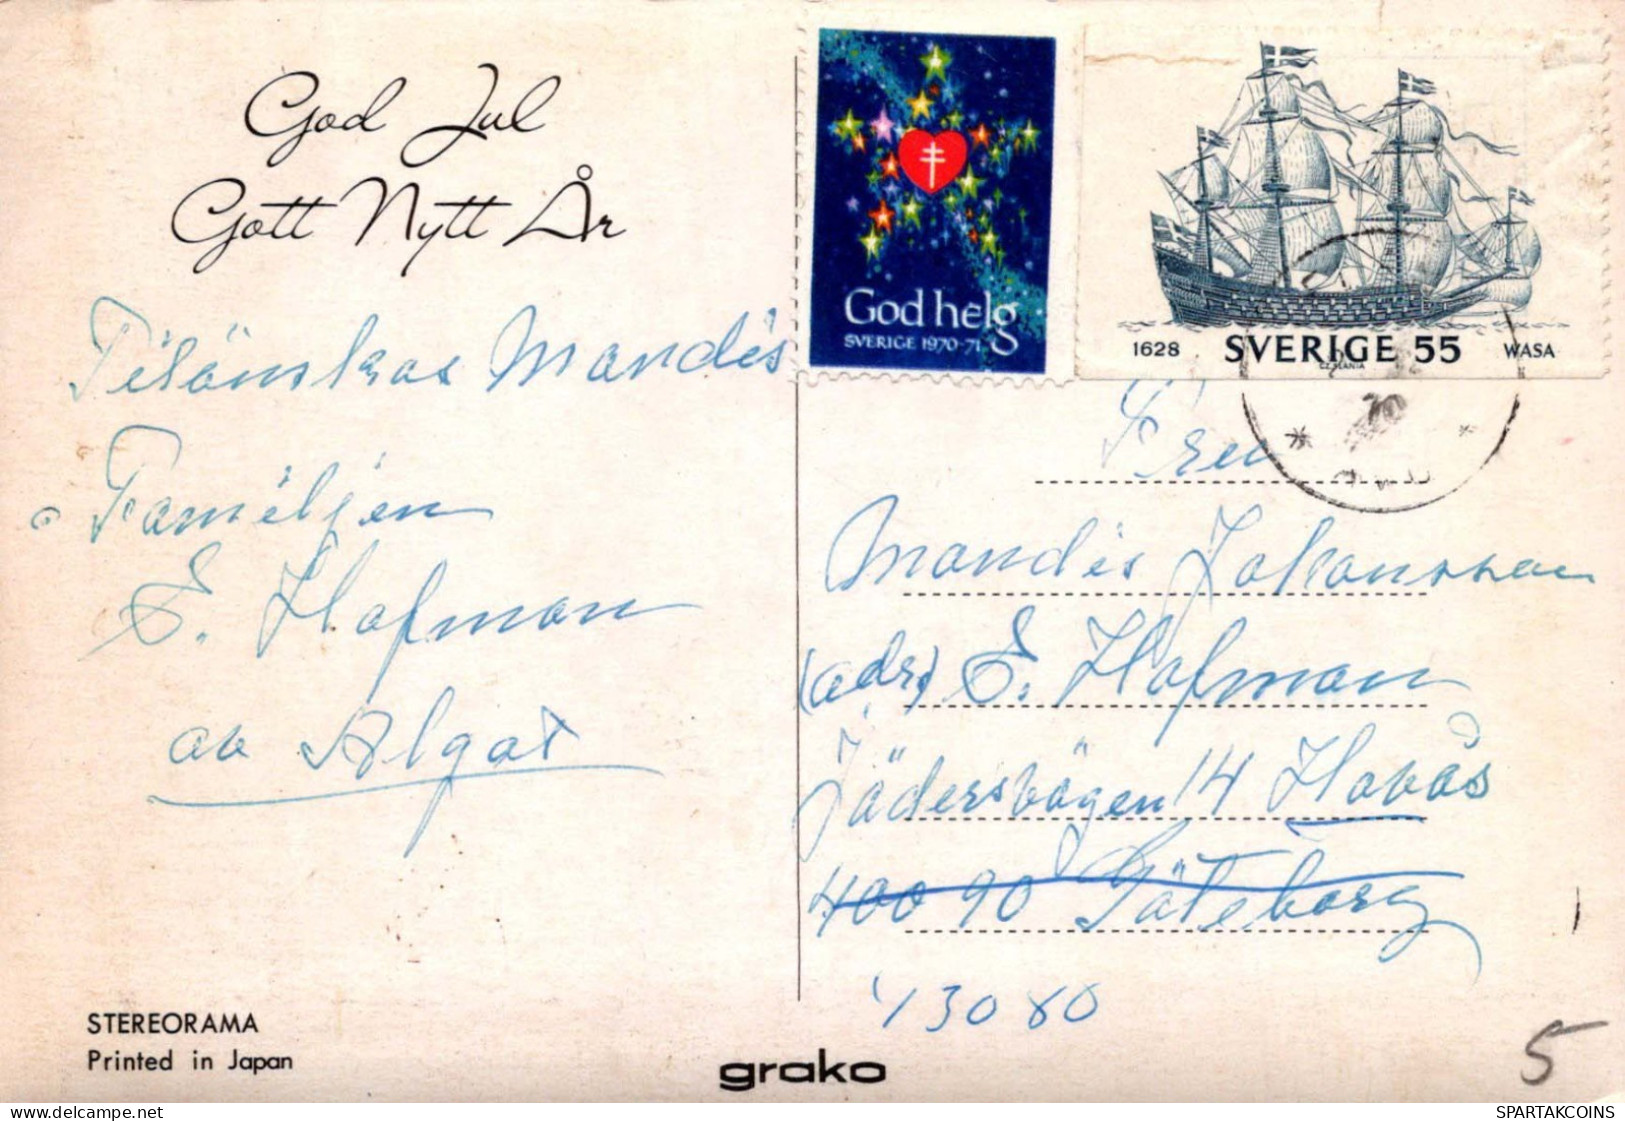 God Jul
Gott Nytt År
Tilönskas Mandis
Familjen
E. Hofman
av Algot
STEREORAMA
Printed in Japan
grako
God helg
SVERIGE 1970-71
1628 SVERIGE 55 WASA
CZ.SLANIA
70
Fru
Mandis Johansson
(adr) E. Hofman
Jädersvägen 14 Hovås
400 90 Göteborg
43080
5
SPARTAKCOINS